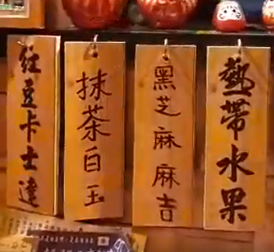 紅豆卡士達
抹茶白玉
黑芝麻麻吉
熱帶水果